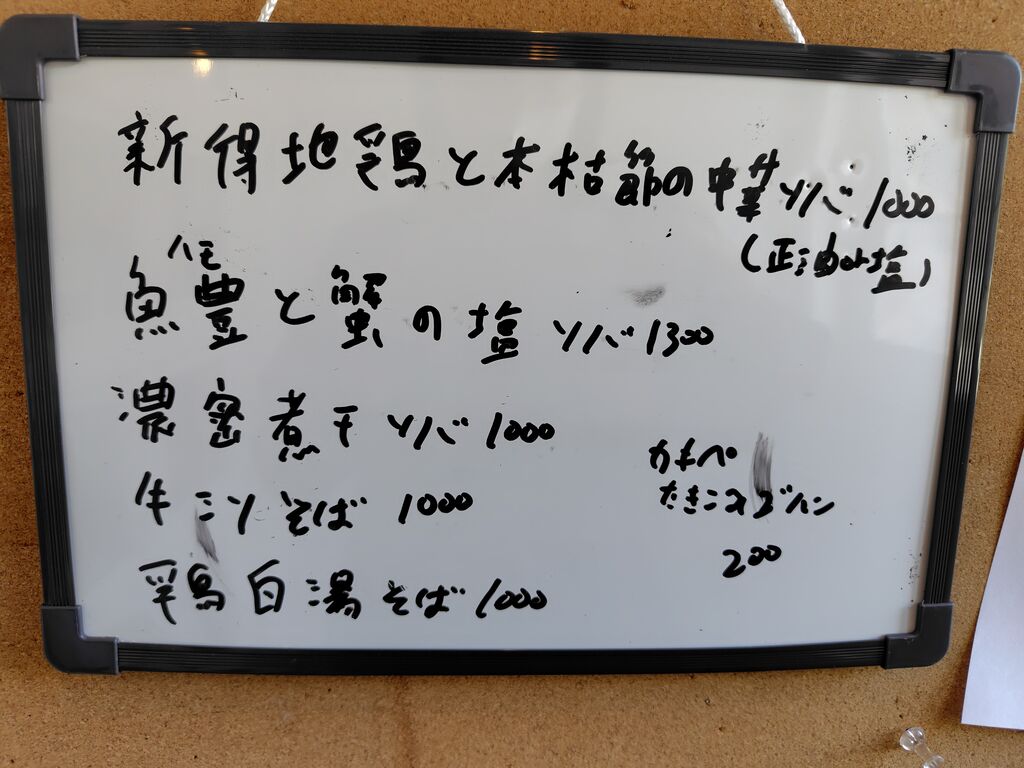 新得地鶏と本枯節の中華ソバ 1000
(正油or塩)
ハモ
鱧と蟹の塩ソバ 1300
濃密煮干ソバ 1000
牛ミソそば 1000
鶏白湯そば 1000
かもぺ
たきこみゴハン
200